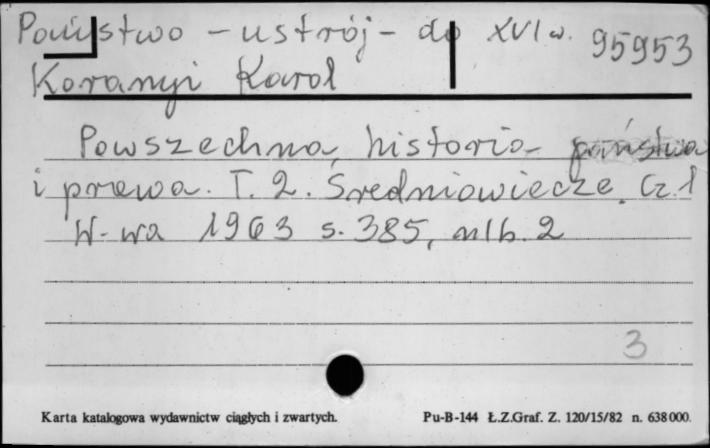 Państwo - ustrój - do XVI w. 95953
Koranyi Karol
Powszechna historia państwa
i prawa. T. 2. Średniowiecze. Cz. 1
W-wa 1963 s. 385, nlb. 2
3
Karta katalogowa wydawnictw ciągłych i zwartych. Pu-B-144 Ł.Z.Graf. Z. 120/15/82 n. 638000.